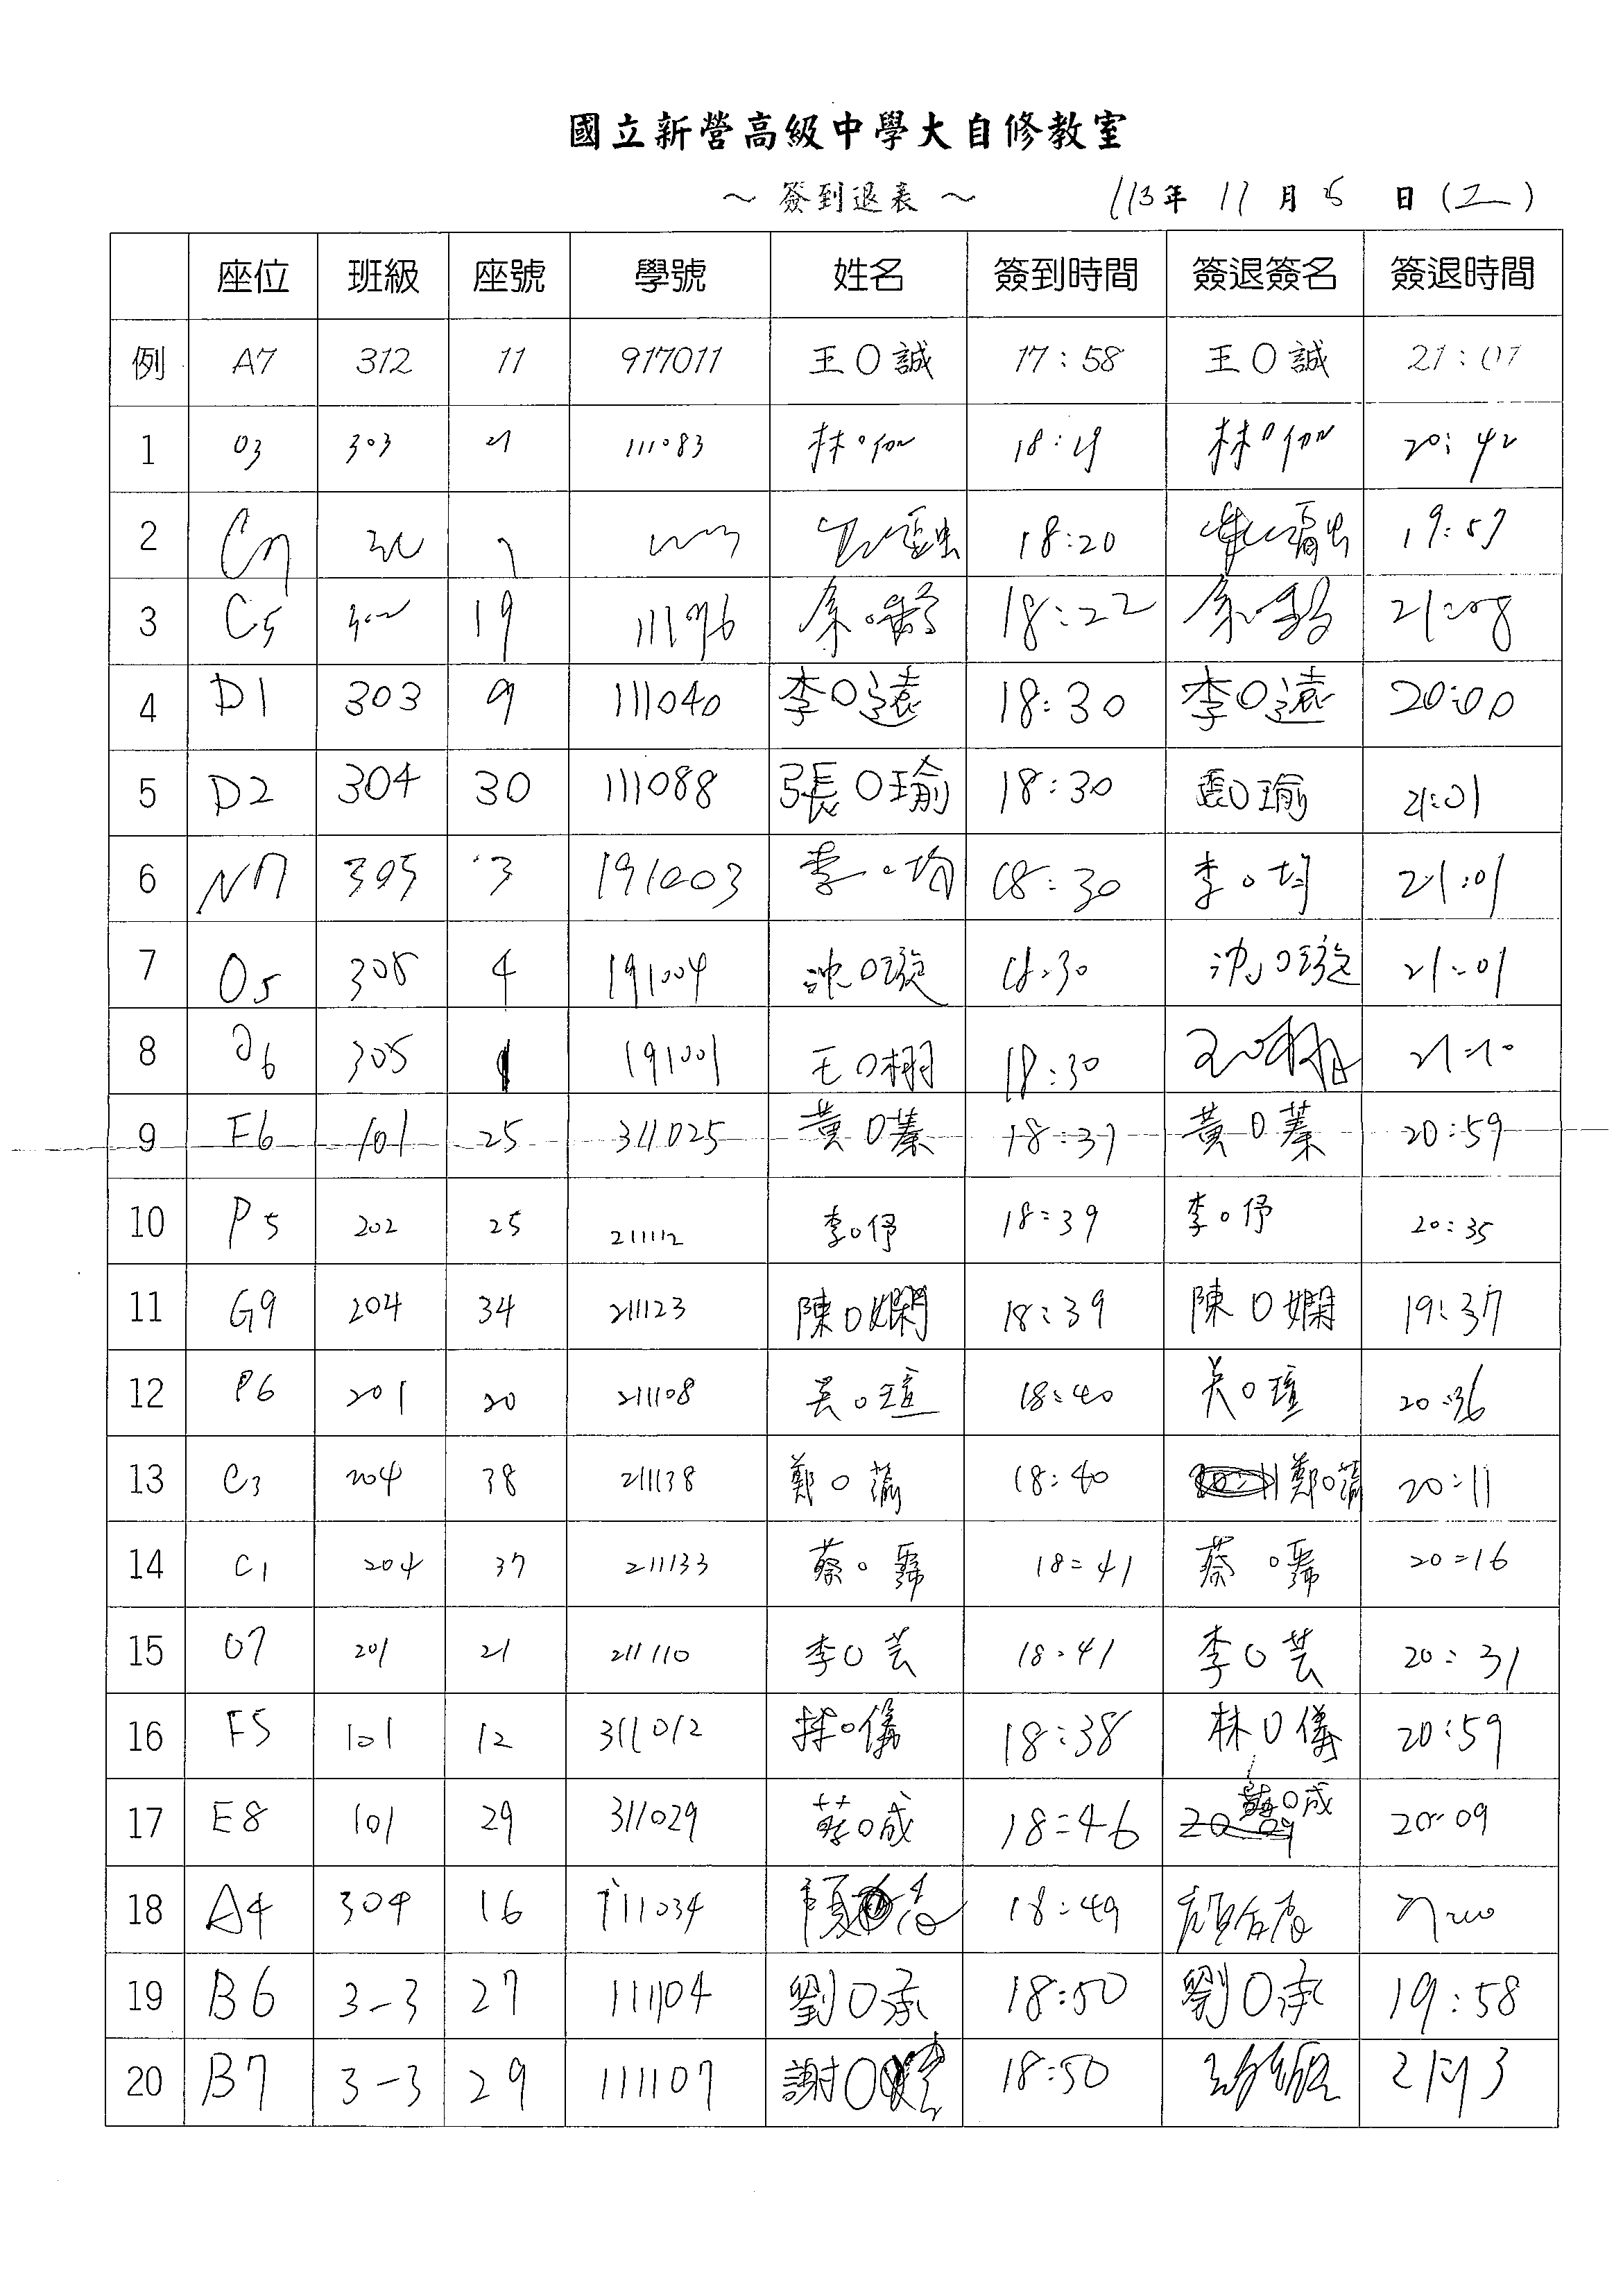 國立新營高級中學大自修教室
～ 簽到退表 ～ 113年 11 月 5 日 (二)
座位 班級 座號 學號 姓名 簽到時間 簽退簽名 簽退時間
例 A7 312 11 917011 王O誠 17:58 王O誠 21:01
1 03 303 21 111083 林O 18:19 林O 20:42
2 C7 18:20 19:57
3 C5 302 19 18:22 21:08
4 D1 303 9 111040 李O遠 18:30 李O遠 20:00
5 D2 304 30 111088 張O瑜 18:30 張O瑜 21:01
6 N7 305 3 191003 李O均 18:30 李O均 21:01
7 O5 305 4 191004 沈O璇 18:30 沈O璇 21:01
8 O6 305 1 191001 王O栩 18:30 21:10
9 E6 101 25 311025 黃O蓁 18:37 黃O蓁 20:59
10 P5 202 25 211112 李O伃 18:39 李O伃 20:35
11 G9 204 34 211123 陳O嫻 18:39 陳O嫻 19:37
12 P6 201 20 211108 吳O瑄 18:40 吳O瑄 20:36
13 C3 204 38 211138 鄭O 18:40 鄭O 20:11
14 C1 204 37 211133 蔡O 18:41 蔡O 20:16
15 07 201 21 211110 李O芸 18:41 李O芸 20:31
16 F5 101 12 311012 林O儀 18:38 林O儀 20:59
17 E8 101 29 311029 蘇O成 18:46 蘇O成 20:09
18 A4 304 16 111034 顏 18:49 顏
19 B6 3-3 27 111104 劉O承 18:50 劉O承 19:58
20 B7 3-3 29 111107 謝O 18:50